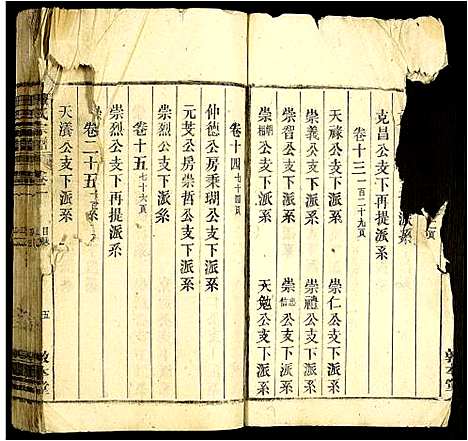 克昌公支下再提派系
卷十三 一百二十九頁
天祿公支下派系 崇仁公支下派系
崇義公支下派系 崇禮公支下派系
崇智公支下派系 崇信公支下派系
崇相公支下派系 天勉公支下派系
卷十四 七十四頁
仲德公房秉瑚公支下派系
元芠公房崇哲公支下派系
崇烈公支下派系
卷十五 七十六頁
崇烈公支下再提派系
卷二十五
天漾公支下派系
目錄
五
敦本堂
敦本堂